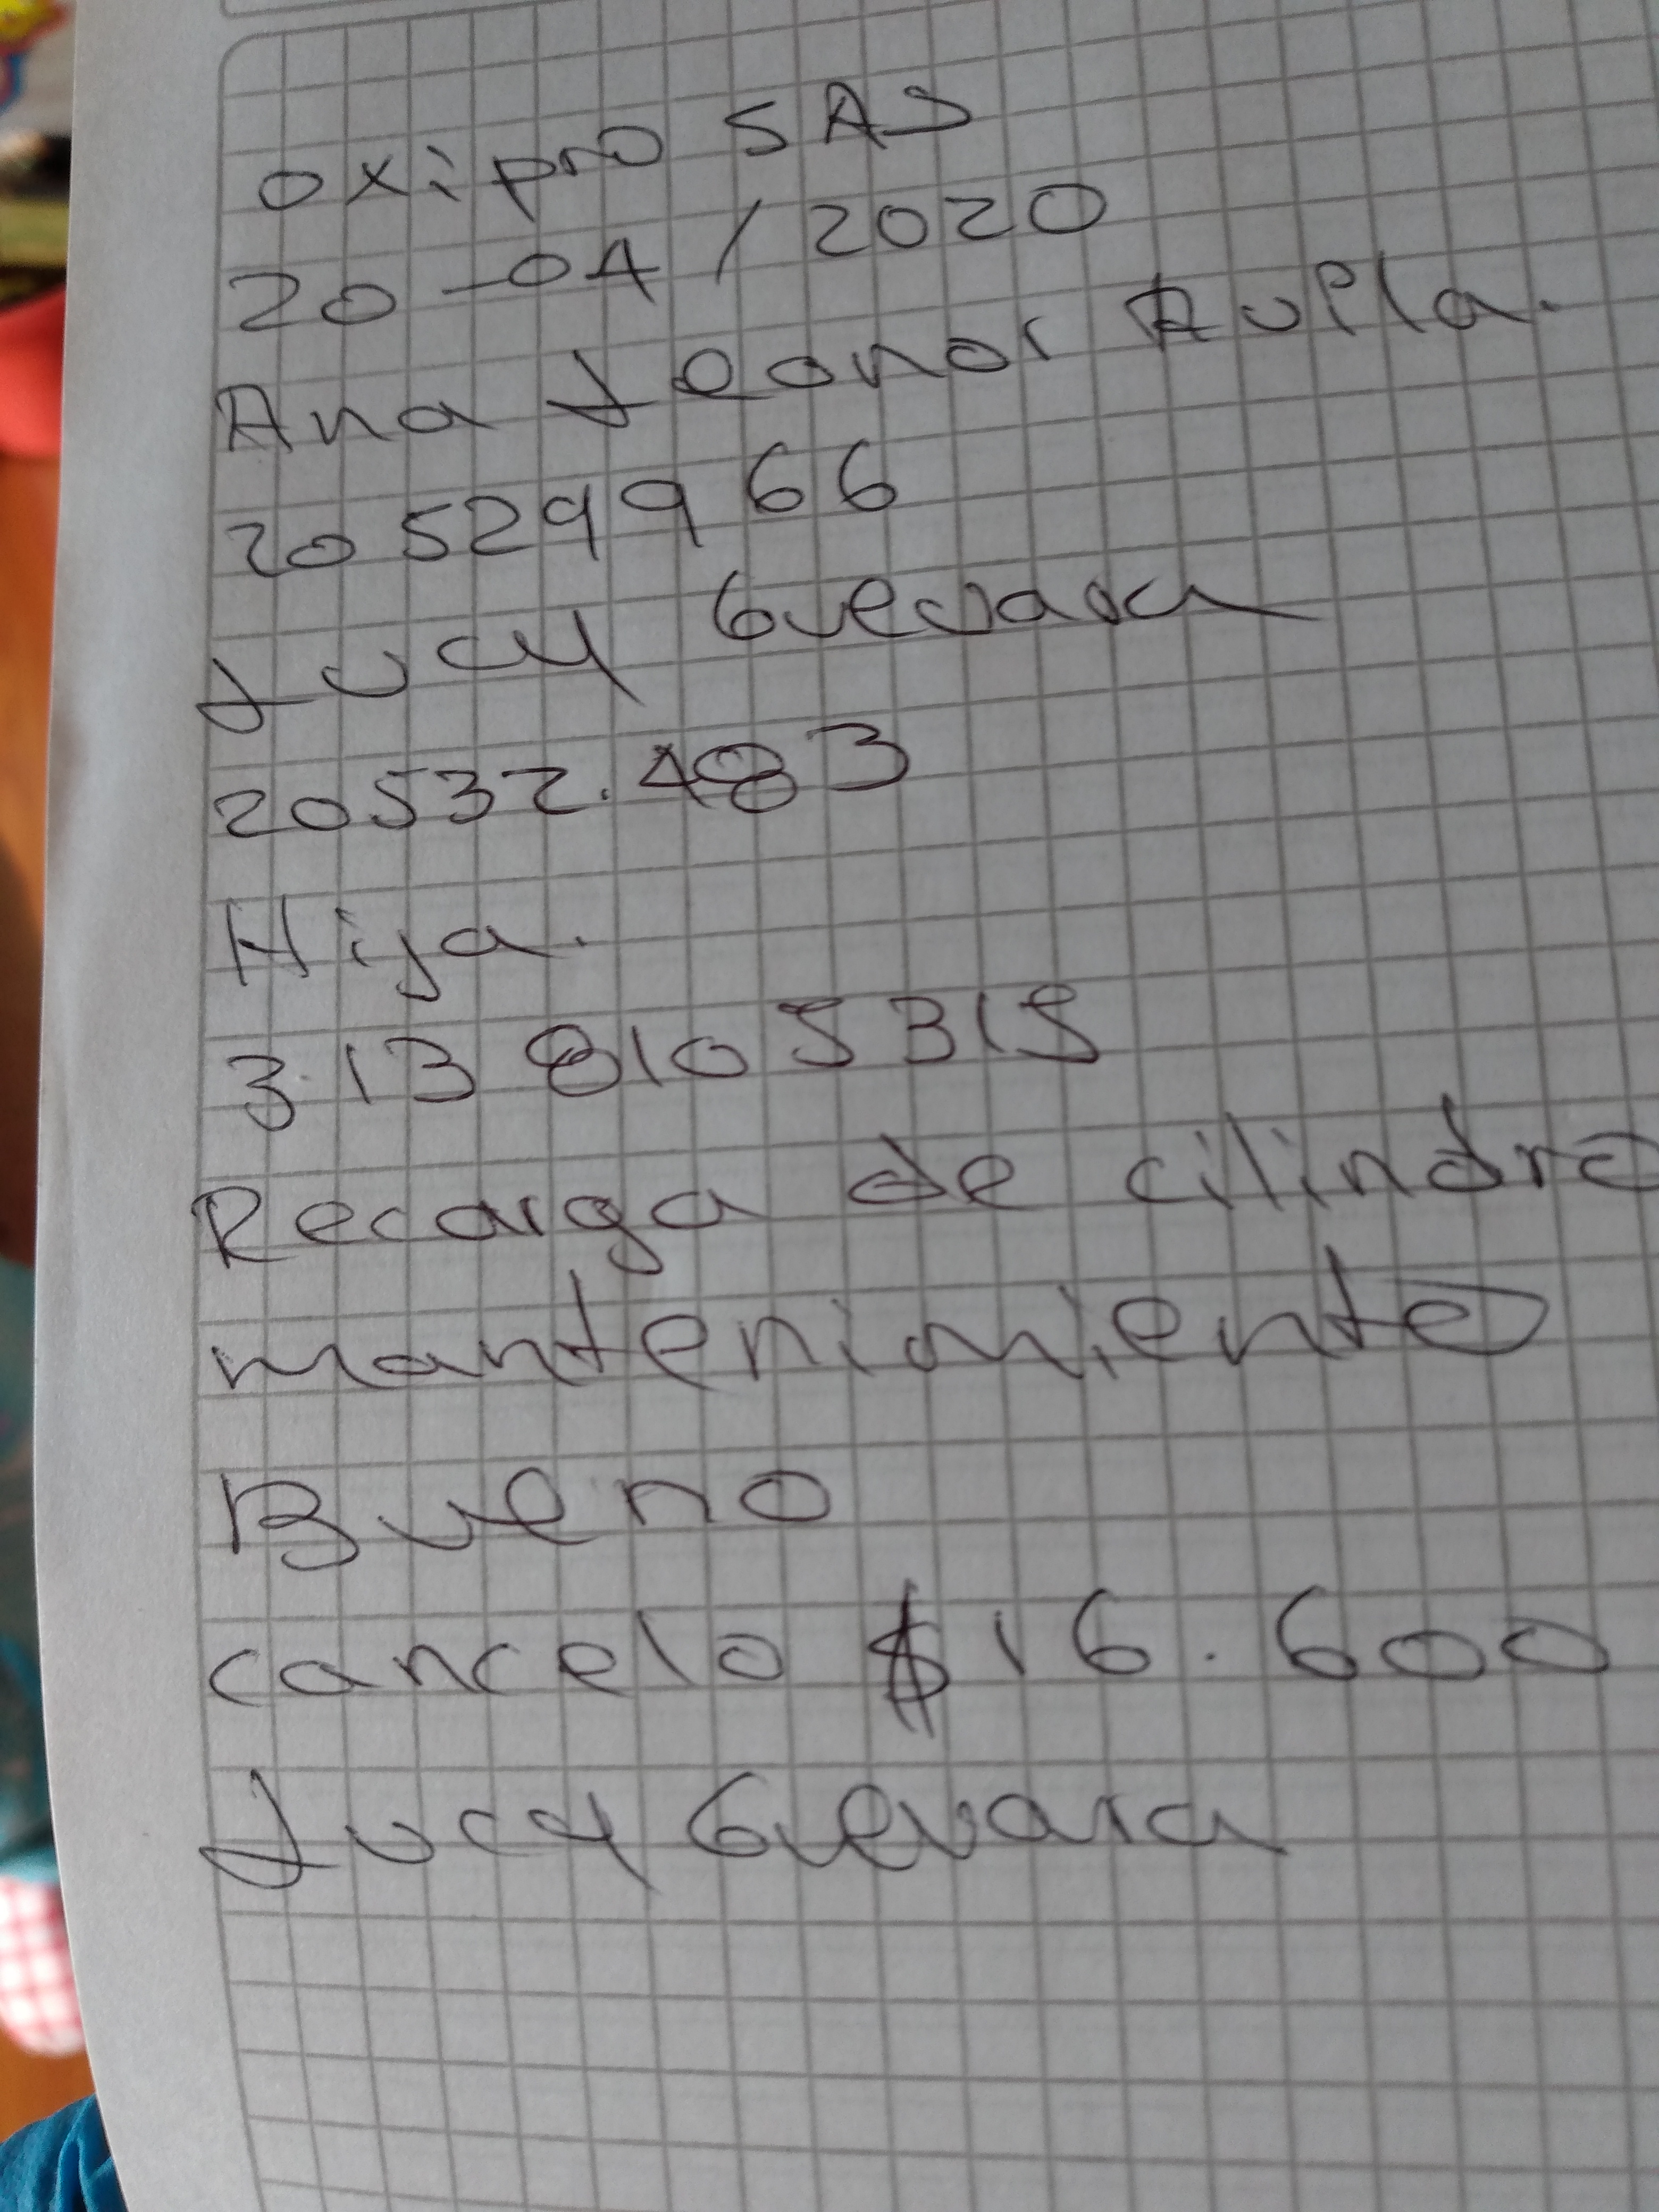 oxipro SAS
20-04/2020
Ana Leonor Avila.
20529966
Lucy Guevara
20532.483
Hija.
313 8105315
Recarga de cilindro
mantenimiento
Bueno
cancelo $16.600
Lucy Guevara